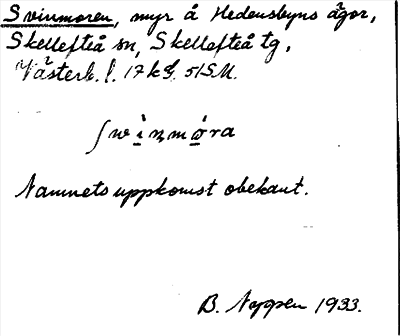 Svinmoren, myr å Hedensbyns ägor,
Skellefteå sn, Skellefteå tg,
Västerb. l. 17 kɋ. 51SM.
ʃwinmøra
Namnets uppkomst obekant.
B. Noppen 1933.